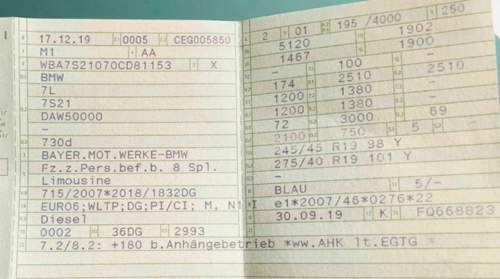 17.12.19 0005 CEG005850
M1 AA
WBA7S21070CD81153 X
BMW
7L
7S21
DAW50000
–
730d
BAYER.MOT.WERKE-BMW
Fz.z.Pers.bef.b. 8 Spl.
Limousine
715/2007*2018/1832DG
EURO6;WLTP;DG;PI/CI; M, N1 I
Diesel
0002 36DG 2993
7.2/8.2: +180 b.Anhängebetrieb *ww.AHK lt.EGTG
2 01 195 /4000 250
5120 1902
1467 1900
– 100 –
174 2510 2510
1200 1380 –
1200 1380 –
72 3000 69
2100 750 5
245/45 R19 98 Y
275/40 R19 101 Y
–
BLAU 5/–
e1*2007/46*0276*22
30.09.19 K FQ668823